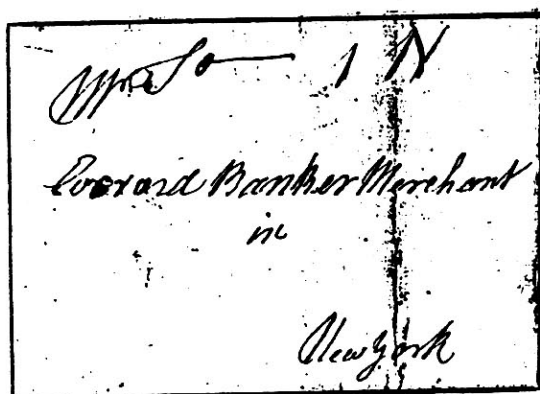 To 1 N
Everard Banker Merchant
in
New York